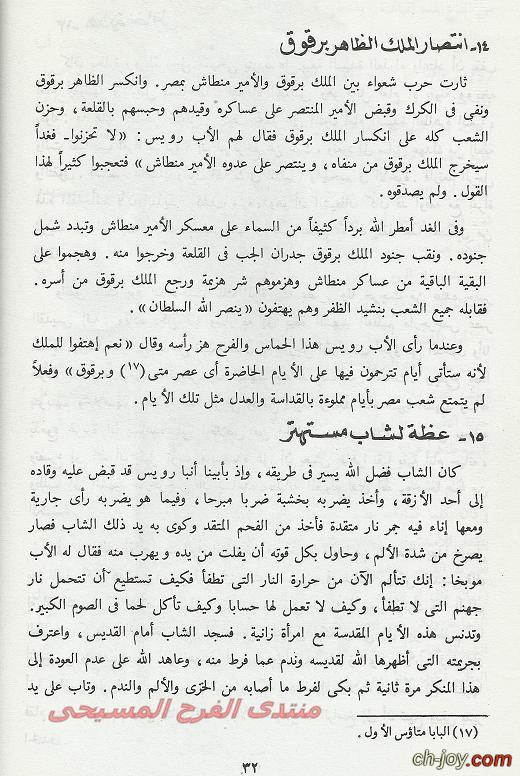 ١٤ـ انتصار الملك الظاهر برقوق
ثارت حرب شعواء بين الملك برقوق والأمير منطاش بمصر. وانكسر الظاهر برقوق
ونفى فى الكرك وقبض الأمير المنتصر على عساكره وقيدهم وحبسهم بالقلعة، وحزن
الشعب كله على انكسار الملك برقوق فقال لهم الأب رويس: «لا تحزنوا- فغداً
سيخرج الملك برقوق من منفاه، وينتصر على عدوه الأمير منطاش» فتعجبوا كثيراً لهذا
القول. ولم يصدقوه.
وفى الغد أمطر الله برداً كثيفاً من السماء على معسكر الأمير منطاش وتبدد شمل
جنوده. ونقب جنود الملك برقوق جدران الجب فى القلعة وخرجوا منه. وهجموا على
البقية الباقية من عساكر منطاش وهزموهم شر هزيمة ورجع الملك برقوق من أسره.
فقابله جميع الشعب بنشيد الظفر وهم يهتفون «ينصر الله السلطان».
وعندما رأى الأب رويس هذا الحماس والفرح هز رأسه وقال «نعم إهتفوا للملك
لأنه ستأتى أيام تترحمون فيها على الأيام الحاضرة أى عصر متى(١٧) وبرقوق» وفعلاً
لم يتمتع شعب مصر بأيام مملوءة بالقداسة والعدل مثل تلك الأيام.
١٥ـ عظة لشاب مستهتر
كان الشاب فضل الله يسير فى طريقه، وإذ بأبينا أنبا رويس قد قبض عليه وقاده
إلى أحد الأزقة، وأخذ يضربه بخشبة ضربا مبرحا، وفيما هو يضربه رأى جارية
ومعها إناء فيه جمر نار متقدة فأخذ من الفحم المتقد وكوى به يد ذلك الشاب فصار
يصرخ من شدة الألم، وحاول بكل قوته أن يفلت من يده ويهرب منه فقال له الأب
موبخا: إنك تتألم الآن من حرارة النار التى تطفأ فكيف تستطيع أن تتحمل نار
جهنم التى لا تطفأ، وكيف لا تعمل لها حسابا وكيف تأكل لحما فى الصوم الكبير.
وتدنس هذه الأيام المقدسة مع امرأة زانية. فسجد الشاب أمام القديس، واعترف
بجريمته التى أظهرها الله لقديسه وندم عما فرط منه، وعاهد الله على عدم العودة إلى
هذا المنكر مرة ثانية ثم بكى لفرط ما أصابه من الخزى والألم والندم. وتاب على يد
منتدى الفرح المسيحى
(١٧) البابا متاؤس الأول.
٣٢
ch-joy.com